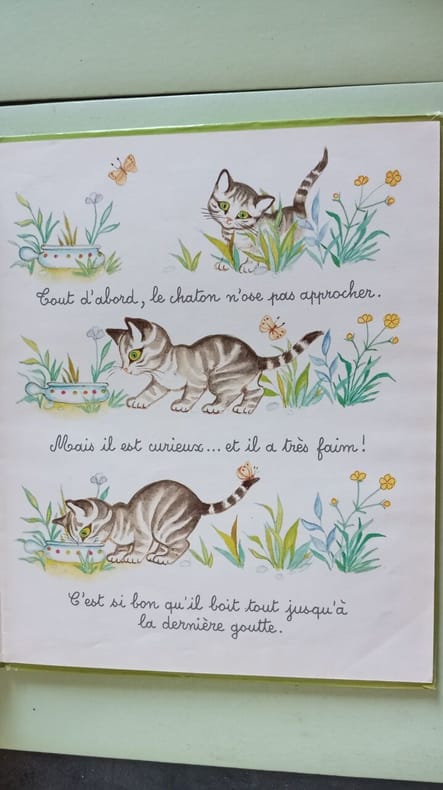 Tout d'abord, le chaton n'ose pas approcher.
Mais il est curieux... et il a très faim !
C'est si bon qu'il boit tout jusqu'à
la dernière goutte.